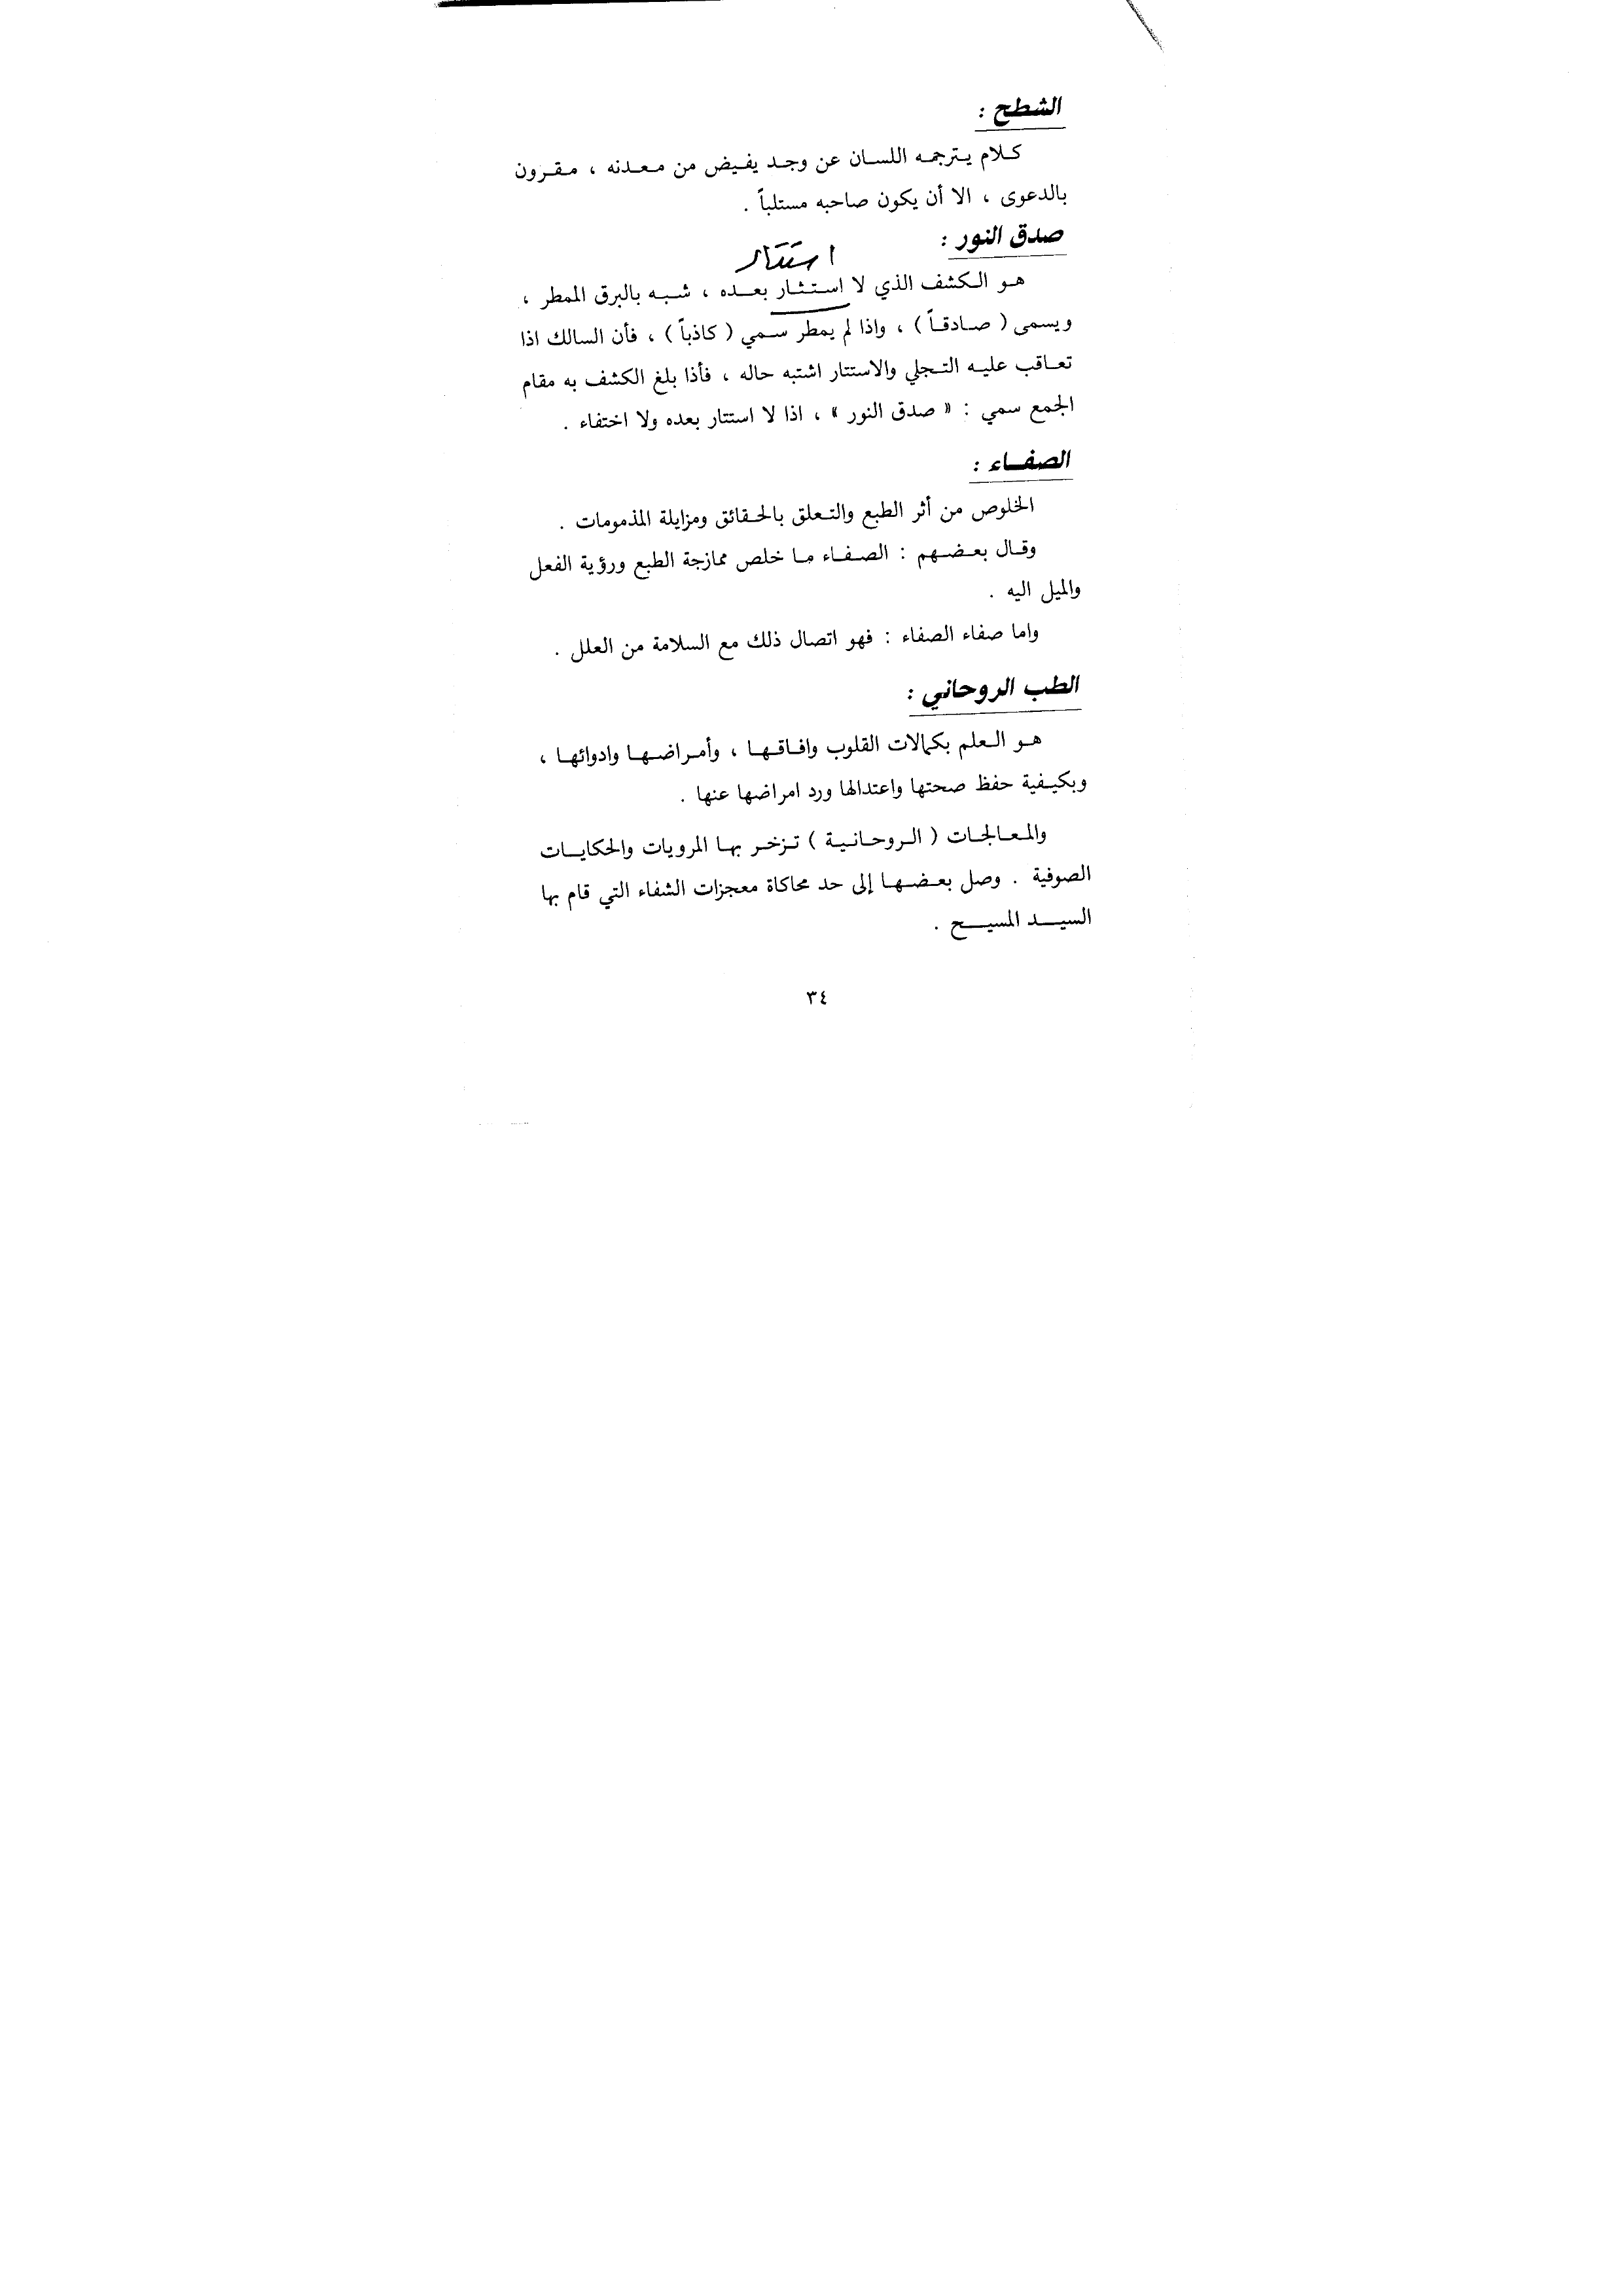 الشطح :
كلام يترجمه اللسان عن وجد يفيض من معدنه ، مقرون
بالدعوى ، الا أن يكون صاحبه مستلباً .
صدق النور :
استتار
هو الكشف الذي لا استثار بعده ، شبه بالبرق الممطر ،
ويسمى ( صادقاً ) ، واذا لم يمطر سمي ( كاذباً ) ، فأن السالك اذا
تعاقب عليه التجلي والاستتار اشتبه حاله ، فأذا بلغ الكشف به مقام
الجمع سمي : « صدق النور » ، اذا لا استتار بعده ولا اختفاء .
الصفاء :
الخلوص من أثر الطبع والتعلق بالحقائق ومزايلة المذمومات .
وقال بعضهم : الصفاء ما خلص ممازجة الطبع ورؤية الفعل
والميل اليه .
واما صفاء الصفاء : فهو اتصال ذلك مع السلامة من العلل .
الطب الروحاني :
هو العلم بكمالات القلوب وافاقها ، وأمراضها وادوائها ،
وبكيفية حفظ صحتها واعتدالها ورد امراضها عنها .
والمعالجات ( الروحانية ) تزخر بها المرويات والحكايات
الصوفية . وصل بعضها إلى حد محاكاة معجزات الشفاء التي قام بها
السيد المسيح .
٣٤